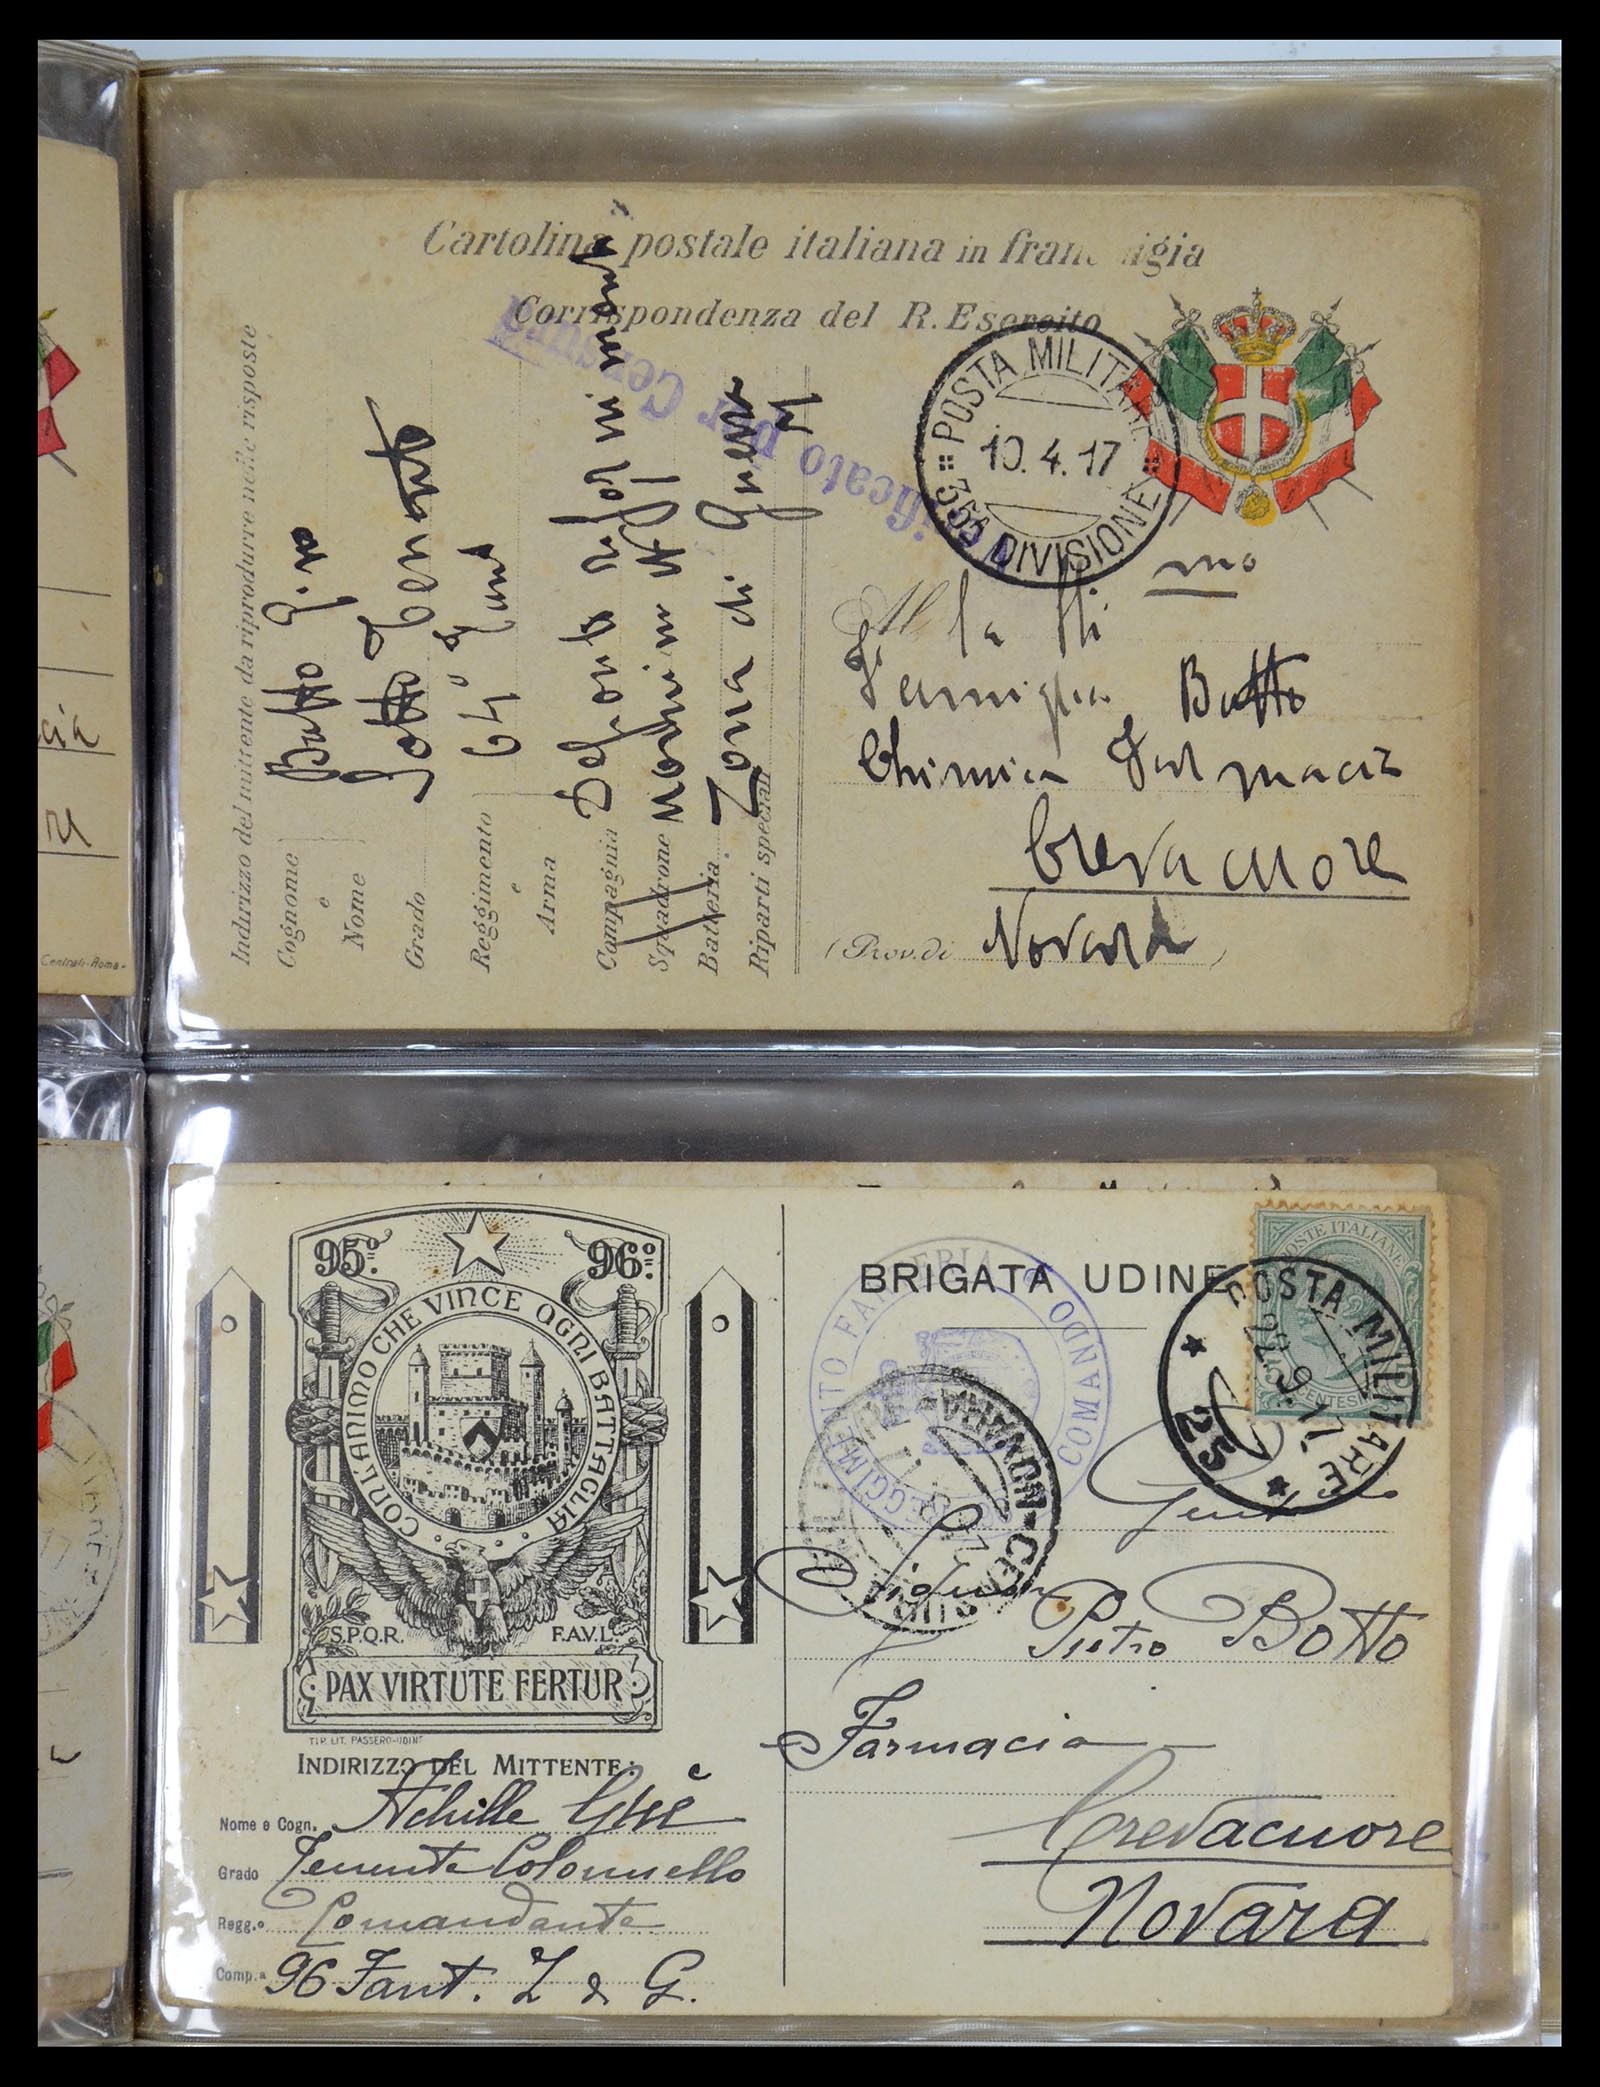 Cartolina postale italiana in fran igia
Corrispondenza del R. Esercito
POSTA MILITARE
10.4.17
35ª DIVISIONE
ificato per Censura
Indirizzo del mittente da riprodurre nelle risposte
Cognome e Nome
Botto Gino
Grado
Sotto Tenente
Reggimento e Arma
64º Fant
Compagnia
Squadrone
Batteria
Riparti speciali
Zona di Guerra
Alla
Famiglia Botto
Chimica Farmacia
Crevacuore
(Prov. di Novara)
cia
Centrali-Roma-
95º 96º
CON L'ANIMO CHE VINCE OGNI BATTAGLIA
S.P.Q.R. F.A.V.L.
PAX VIRTUTE FERTUR
TIP. LIT. PASSERO-UDINE
INDIRIZZO DEL MITTENTE:
Nome e Cogn. Achille
Grado Tenente Colonnello
Regg.º Comandante
Comp.ª 96 Fant. Z d G.
BRIGATA UDINE
REGGIMENTO FANTERIA
COMANDO
POSTE ITALIANE
CENTESIMI
POSTA MILITARE
25
Signor
Pietro Botto
Farmacia
Crevacuore
Novara